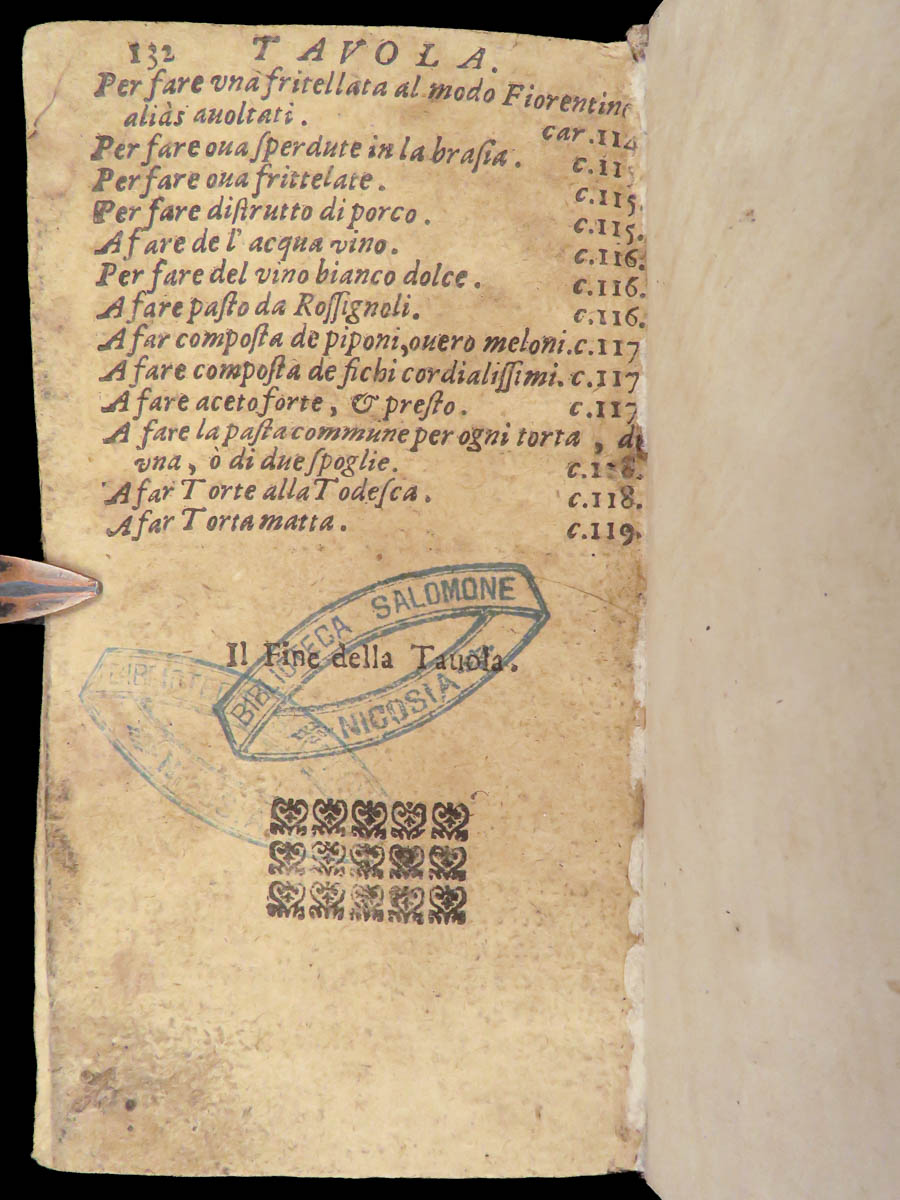 132 TAVOLA.
Per fare vna fritellata al modo Fiorentino
aliàs auoltati. car.114
Per fare oua ſperdute in la braſia. c.115
Per fare oua frittelate. c.115.
Per fare diſtrutto di porco. c.115.
A fare de l' acqua vino. c.116.
Per fare del vino bianco dolce. c.116.
A fare paſto da Roſſignoli. c.116.
A far compoſta de piponi, ouero meloni. c.117
A fare compoſta de fichi cordialiſſimi. c.117
A fare aceto forte, & preſto. c.117
A fare la paſta commune per ogni torta, di
vna, ò di due ſpoglie. c.118.
A far Torte alla Todeſca. c.118.
A far Torta matta. c.119.
BIBLIOTECA SALOMONE
Il Fine della Tauola.
NICOSIA
BIBLIOTE